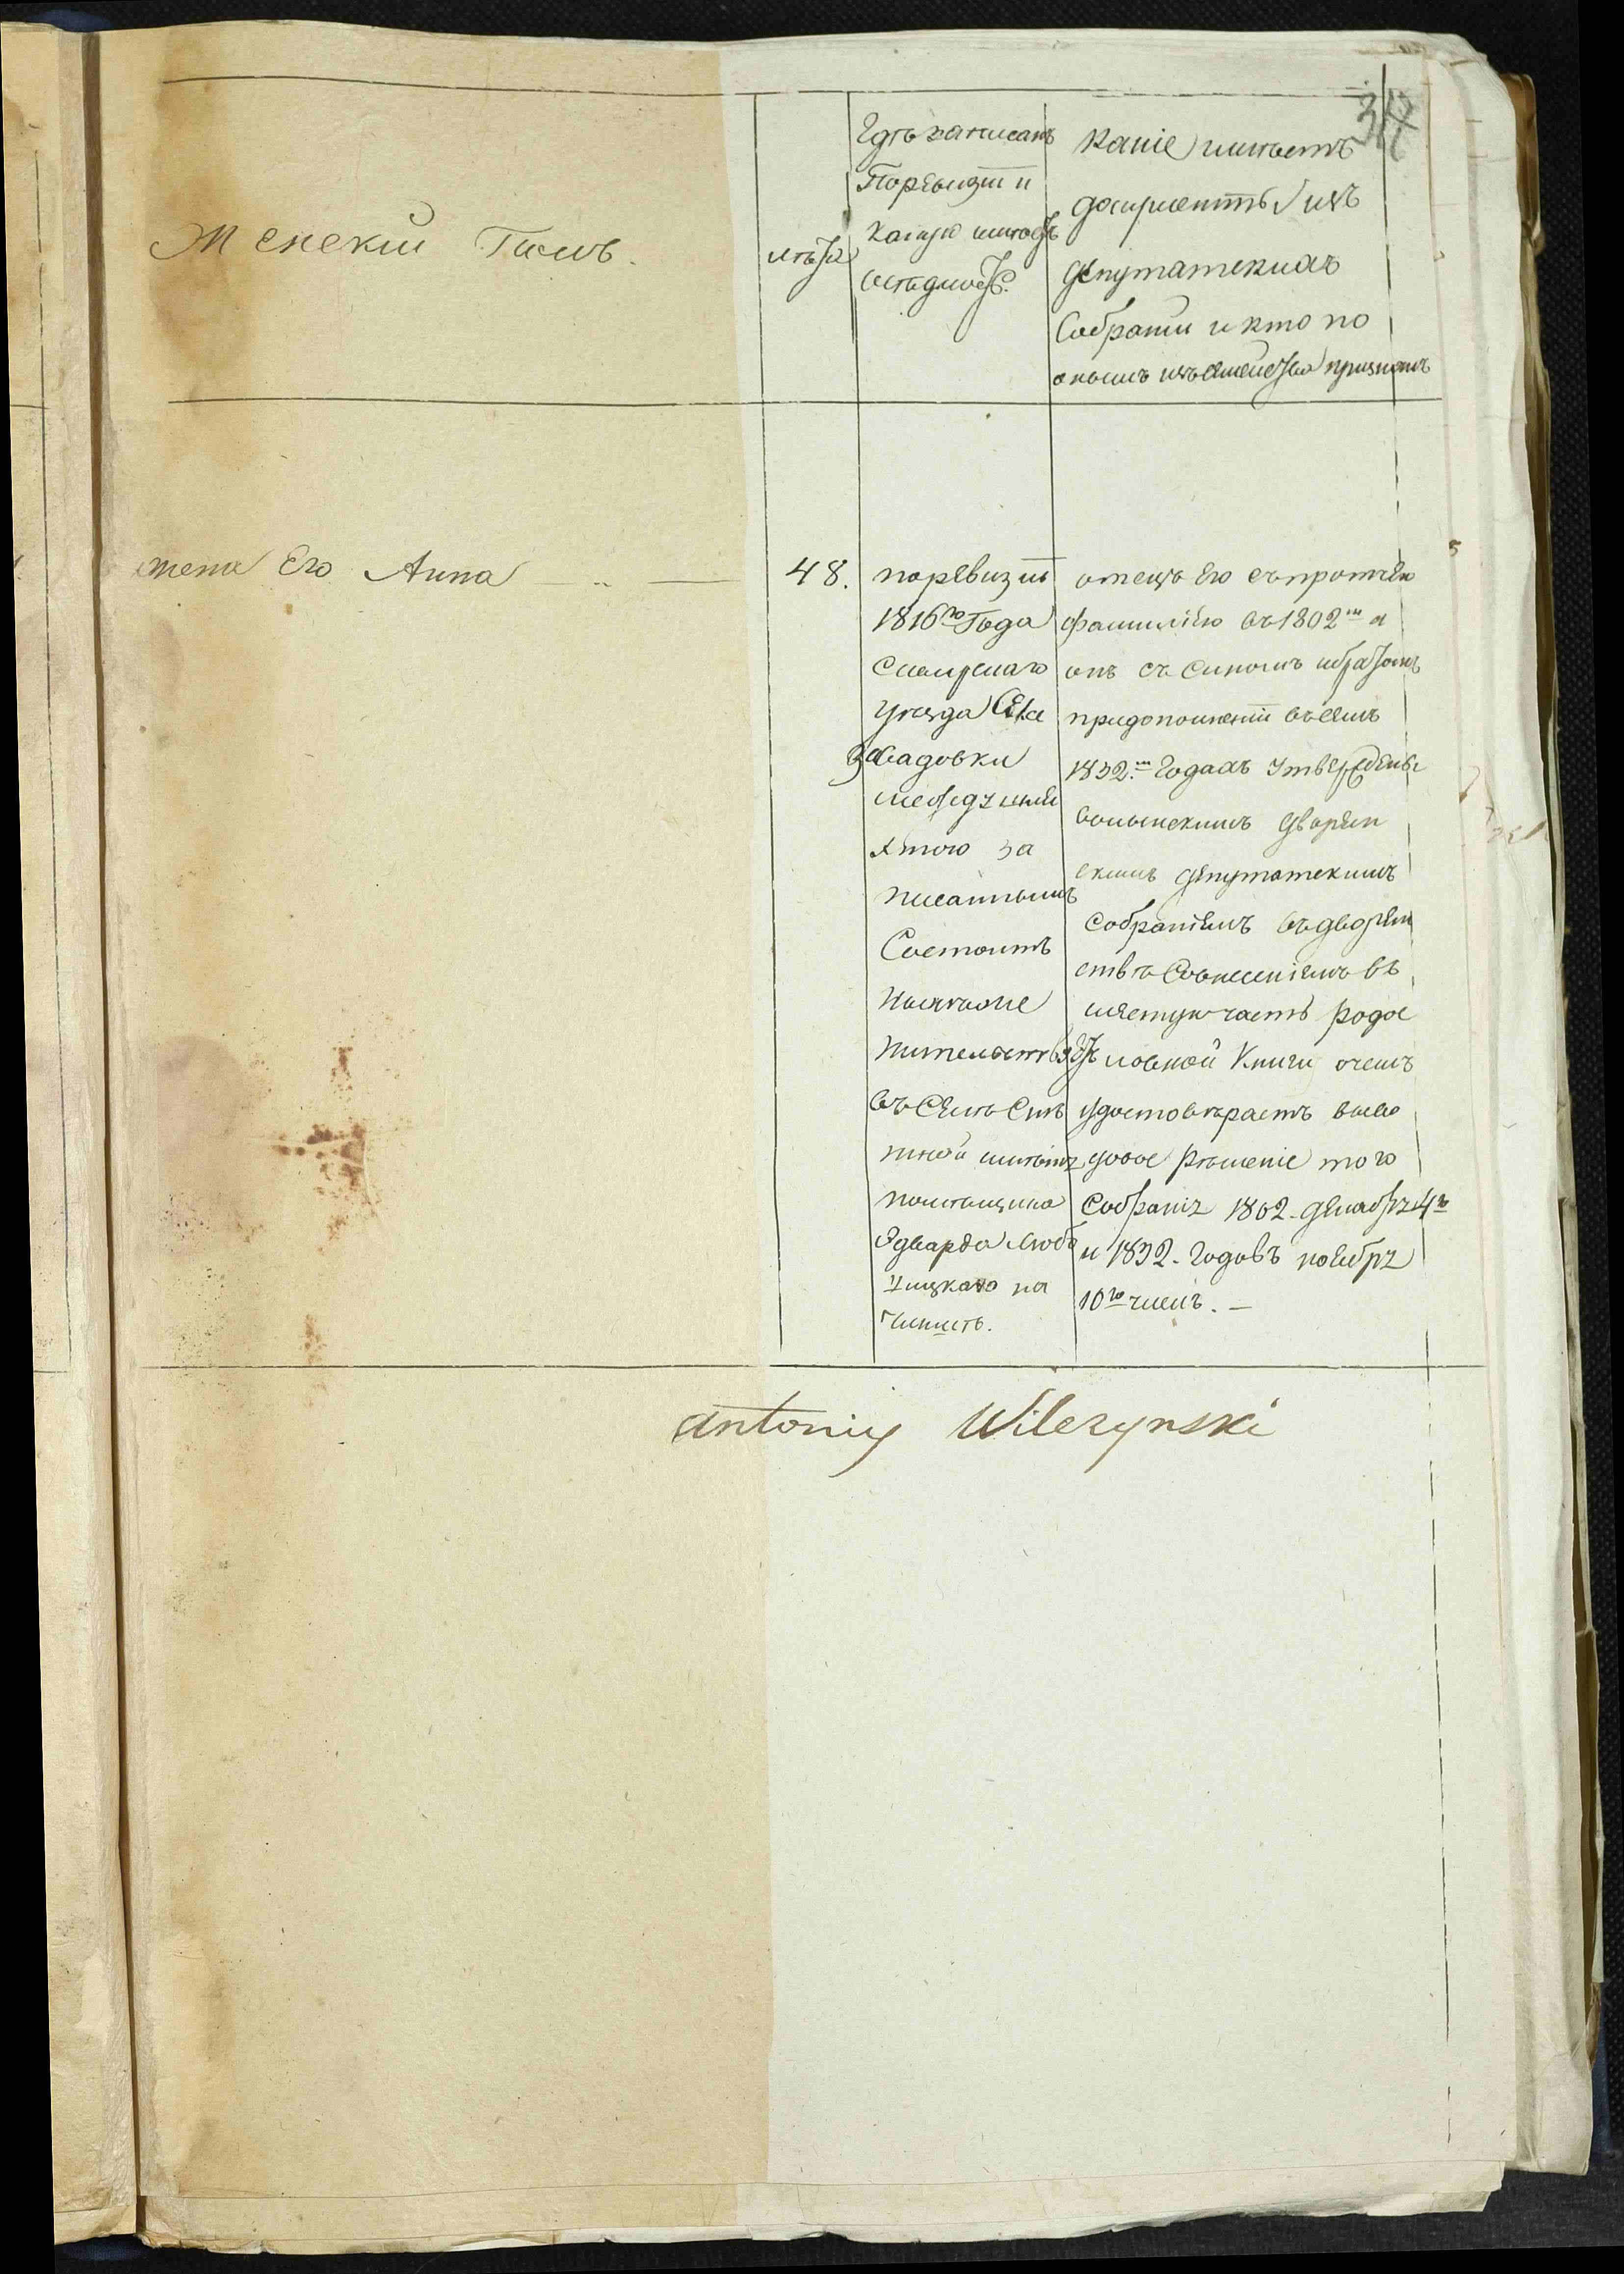 34
Женскій Полъ.
лѣта
Гдѣ записанъ
По ревизіи и
какую имѣетъ
осѣдлость.
Какіе имѣетъ
документы изъ
депутатскихъ
Собраній и кто по
онымъ изъ семейства признанъ
жена Его Анна
48.
по ревизіи
1816го Года
уѣзда Села
Садовки
шляхтою за
писаннымъ
Состоитъ
жительство
въ Селѣ
имѣнія
помѣщика
Эдварда Любо
на
Чиншѣ.
отецъ Его съ протчею
фамиліею въ 1802м а
онъ съ Сыномъ
при дополненіи въ семъ
1832м Годахъ Утверждены
волынскимъ дворян
скимъ депутатскимъ
Собраніемъ въ дворян
ствѣ Совнесеніемъ въ
шестую часть родос
ловной Книги о чемъ
удостовѣряетъ
рѣшеніе того
Собранія 1802 декабря 4го
и 1832. Годовъ ноября
10го числъ. —
Antoniy Wilczynski